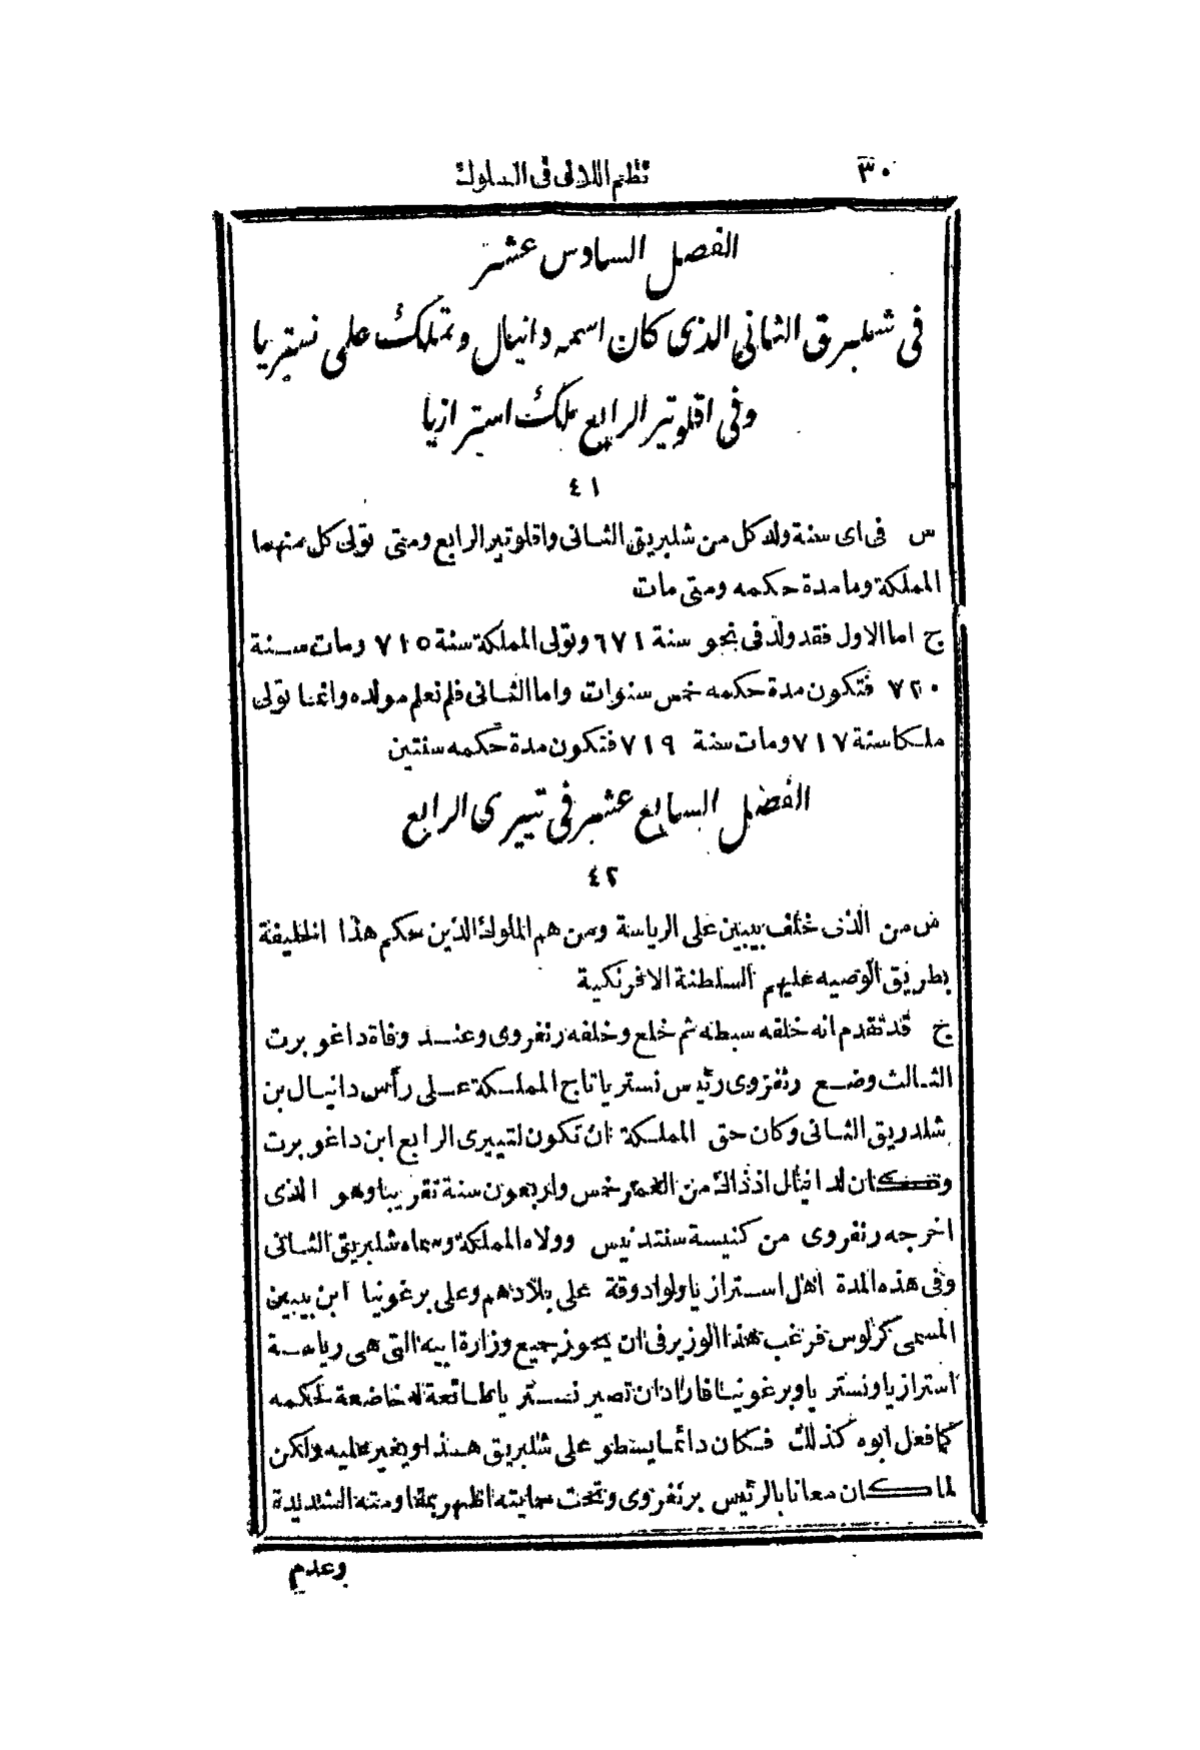 ٣٠ نظم اللالى فى السلوك
الفصل السادس عشر
فى شلبريق الثانى الذى كان اسمه دانيال وتملك على نستريا
وفى اقلوتير الرابع ملك استرازيا
٤١
س فى اى سنة ولد كل من شلبريق الثانى واقلوتير الرابع ومتى تولى كل منهما
المملكة وما مدة حكمه ومتى مات
ج اما الاول فقد ولد فى نحو سنة ٦٧١ وتولى المملكة سنة ٧١٥ ومات سنة
٧٢٠ فتكون مدة حكمه خمس سنوات واما الثانى فلم نعلم مولده وانما تولى
ملكا سنة ٧١٧ ومات سنة ٧١٩ فتكون مدة حكمه سنتين
الفصل السابع عشر فى تييرى الرابع
٤٢
س من الذى خلف بيبين على الرياسة ومن هم الملوك الذين حكم هذا الخليفة
بطريق الوصيه عليهم السلطنة الافرنكية
ج قد تقدم انه خلفه سبطه ثم خلع وخلفه رنفروى وعند وفاة داغو برت
الثالث وضع رنفروى رئيس نستريا تاج المملكة على رأس دانيال بن
شلدريق الثانى وكان حق المملكة ان تكون لتييرى الرابع ابن داغو برت
وكان لدانيال اذذاك من العمر خمس واربعون سنة تقريبا وهو الذى
اخرجه رنفروى من كنيسة سنتدنيس وولاه المملكة وسماه شلبريق الثانى
وفى هذه المدة اهل استرازيا ولوادوقة على بلادهم وعلى برغونيا ابن بيبين
المسمى كرلوس فرغب هذا الوزير فى ان يحوز جميع وزارة ابيه التى هى رياسة
استرازيا ونستريا وبرغونيا فاراد ان تصير نستريا طائعة له خاضعة لحكمه
كما فعل ابوه كذلك فكان دائما يسطو على شلبريق هذا ويغير عليه ولكن
لما كان معانا بالرئيس برنفروى وتحت حمايته اظهر مقاومته الشديدة
وعدم